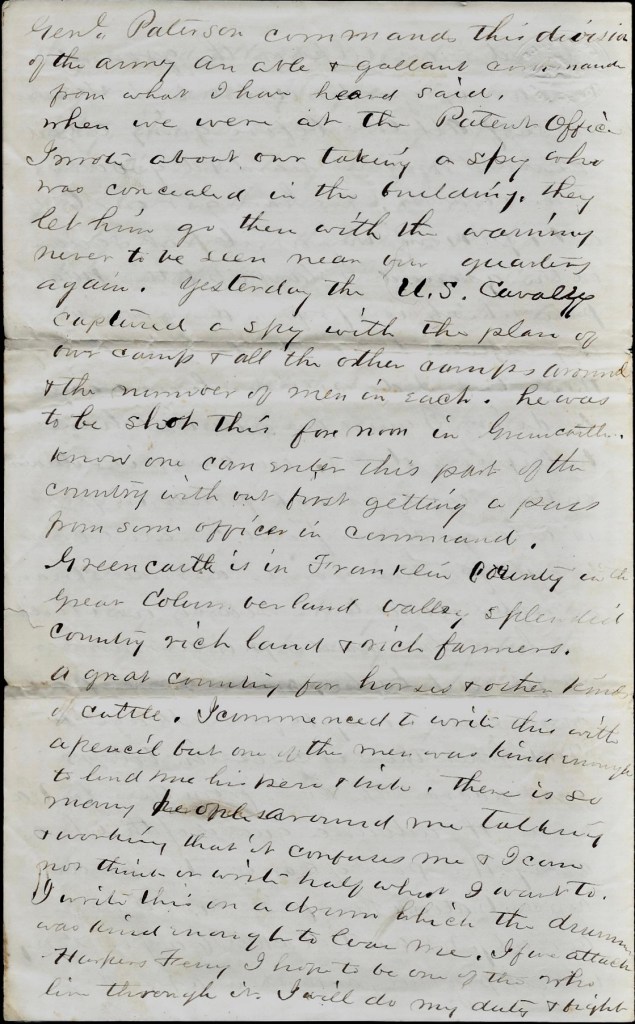 Genl Paterson commands this division
of the army an able & gallant commande
from what I have heard said.
when we were at the Patent Office
I wrote about our taking a spy who
was concealed in the building. they
let him go then with the warning
never to be seen near our quarters
again. Yesterday the U.S. Cavalry
captured a spy with the plan of
our camp & all the other camps around
& the number of men in each. he was
to be shot this fore noon in Greencastle.
know one can enter this part of the
country with out first getting a pass
from some officer in command.
Greencastle is in Franklin County in the
great Columberland valley splendid
country rich land & rich farmers.
a great country for horses & other kind
of cattle. I commenced to write this with
a pencil but one of the men was kind enough
to lend me his pen & ink. There is so
many people around me talking
& working that it confuses me & I can
not think or write half what I want to.
I write this on a drum which the drummer
was kind enough to loan me. If we attack
Harpers Ferry I hope to be one of the who
live through it. I will do my duty & fight